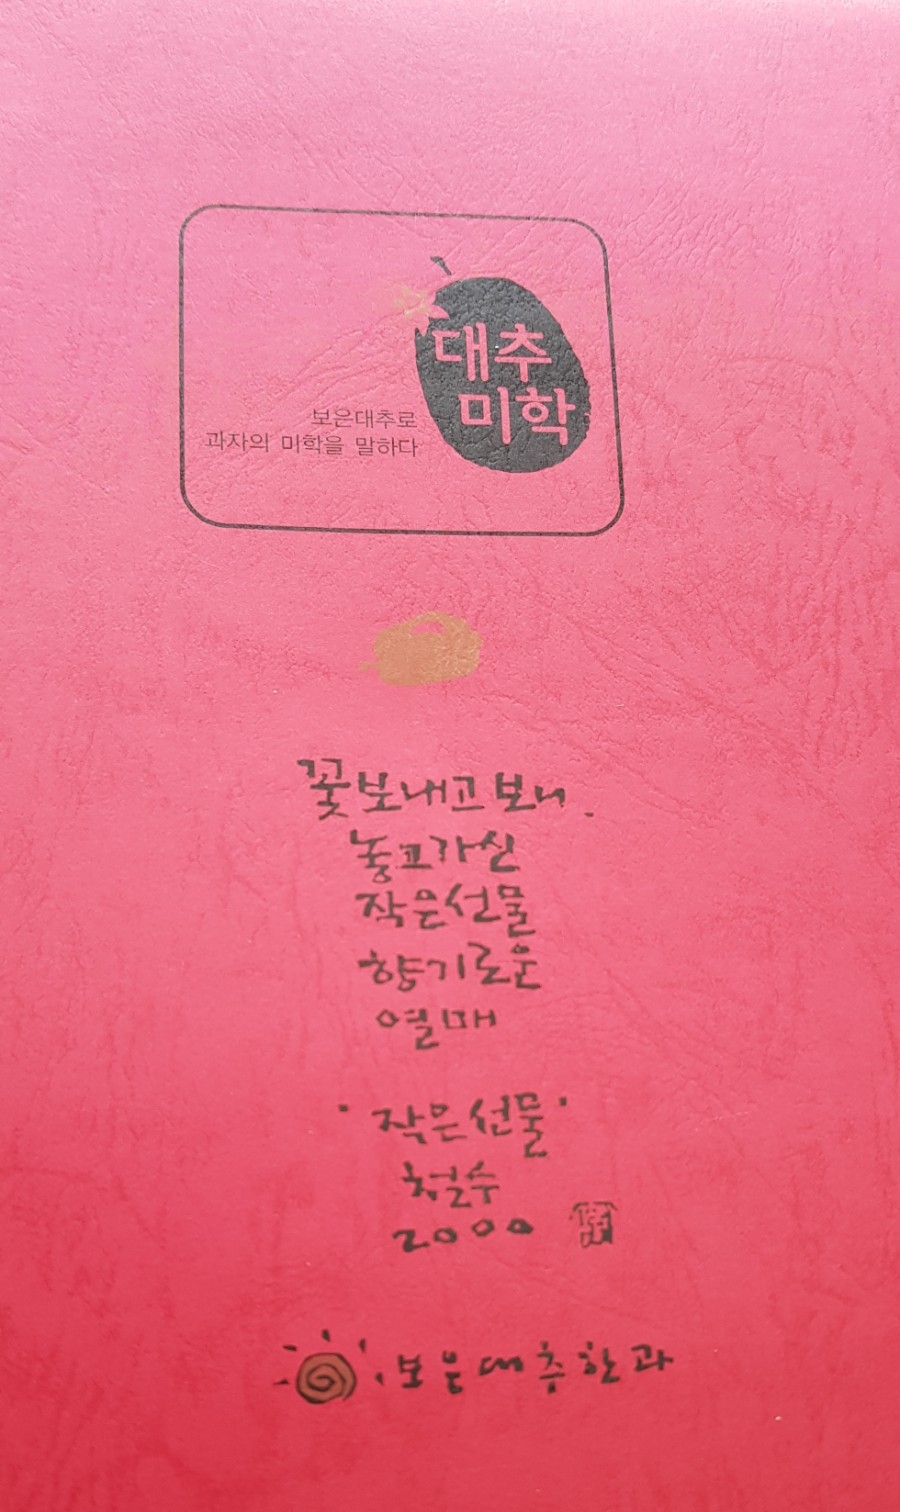 대추
미학
보은대추로
과자의 미학을 말하다
꽃보내고보니,
놓고가신
작은선물
향기로운
열매
'작은선물'
철수
2000
보은대추한과